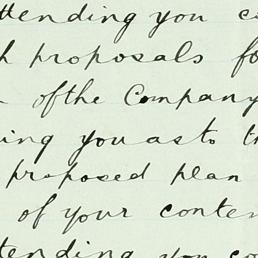 ttending you co
h proposals fo
of the Company
ing you as to th
proposed plan
of your conten
tending you co